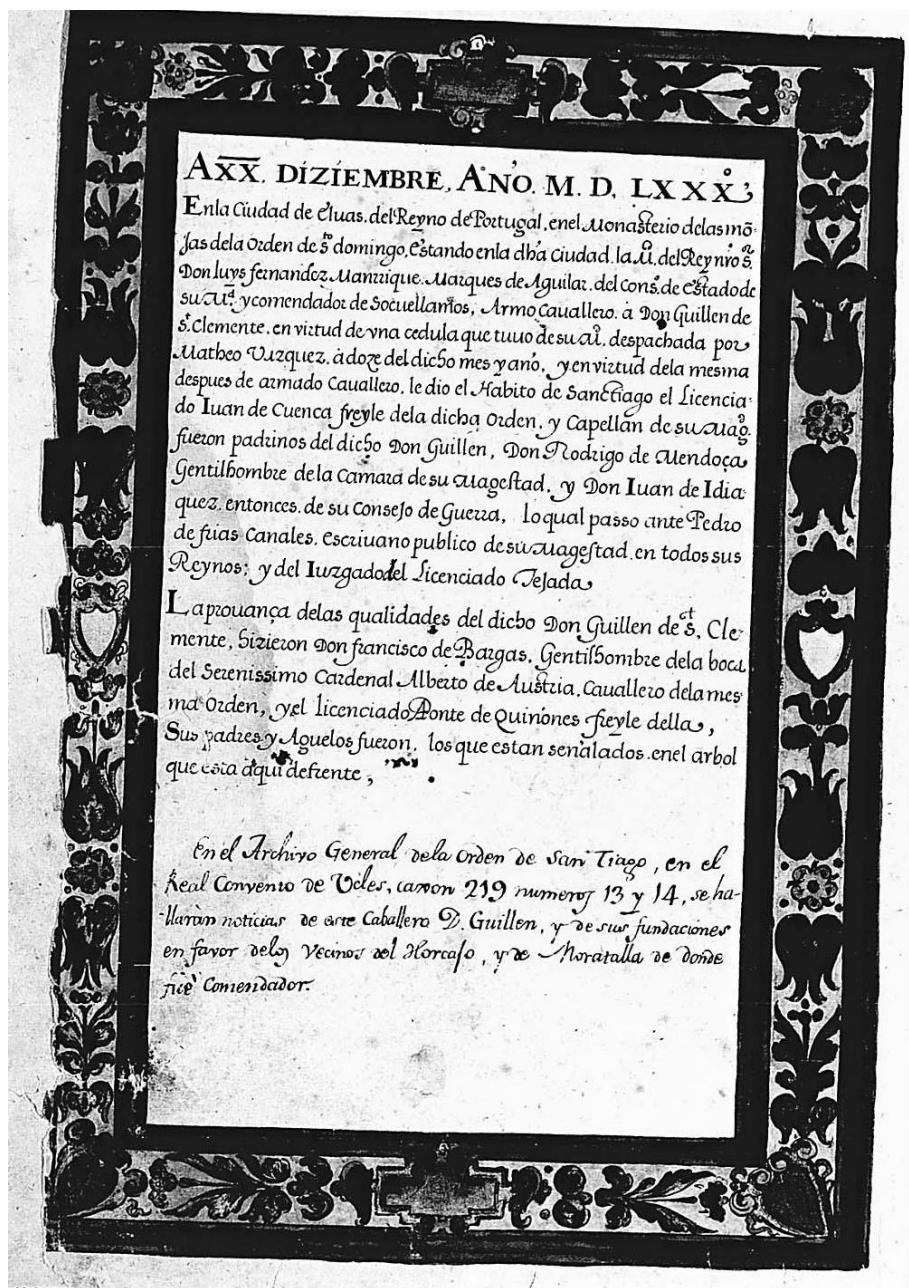 AXX. DIZIEMBRE, AÑO. M. D. LXXX.
En la Ciudad de Eluas. del Reyno de Portugal. en el Monasterio delas mõ-
jas dela Orden de s.to domingo, estando en la dha ciudad. la M. del Rey nro s.r
Don luys fernandez Manrrique. Marques de Aguilar. del cons.o de estado de
su M.d y comendador de Socuellamos, Armo Cauallero. a Don Guillen de
s.t Clemente. en virtud de vna cedula que tuuo de su M. despachada por
Matheo Vazquez. à doze del dicho mes y año. y en virtud dela mesma
despues de armado Cauallero. le dio el Habito de Sanctiago el Licencia-
do Iuan de Cuenca freyle dela dicha Orden. y Capellan de su Mag.d
fueron padrinos del dicho Don Guillen, Don Rodrigo de Mendoça
Gentilhombre de la Camara de su Magestad. y Don Iuan de Idia
quez. entonces. de su Consejo de Guerra, lo qual passo ante Pedro
de frias Canales. escriuano publico de su Magestad. en todos sus
Reynos; y del Iuzgado del Licenciado Tejada
La prouança delas qualidades del dicho Don Guillen de s.ct Cle-
mente, hizieron Don francisco de Bargas. Gentilhombre dela boca
del Serenissimo Cardenal Alberto de Austria. Cauallero dela mes
ma Orden, y el licenciado Aponte de Quiñones freyle della,
Sus padres y Aguelos fueron. los que estan señalados. en el arbol
que esta aqui defrente,
En el Archivo General dela Orden de San Tiago, en el
Real Convento de Ucles, caxon 219 numeros 13 y 14, se ha-
llaràn noticias de este Caballero D. Guillen, y de sus fundaciones
en favor delos Vecinos del Horcajo, y de Moratalla de donde
fue Comendador.